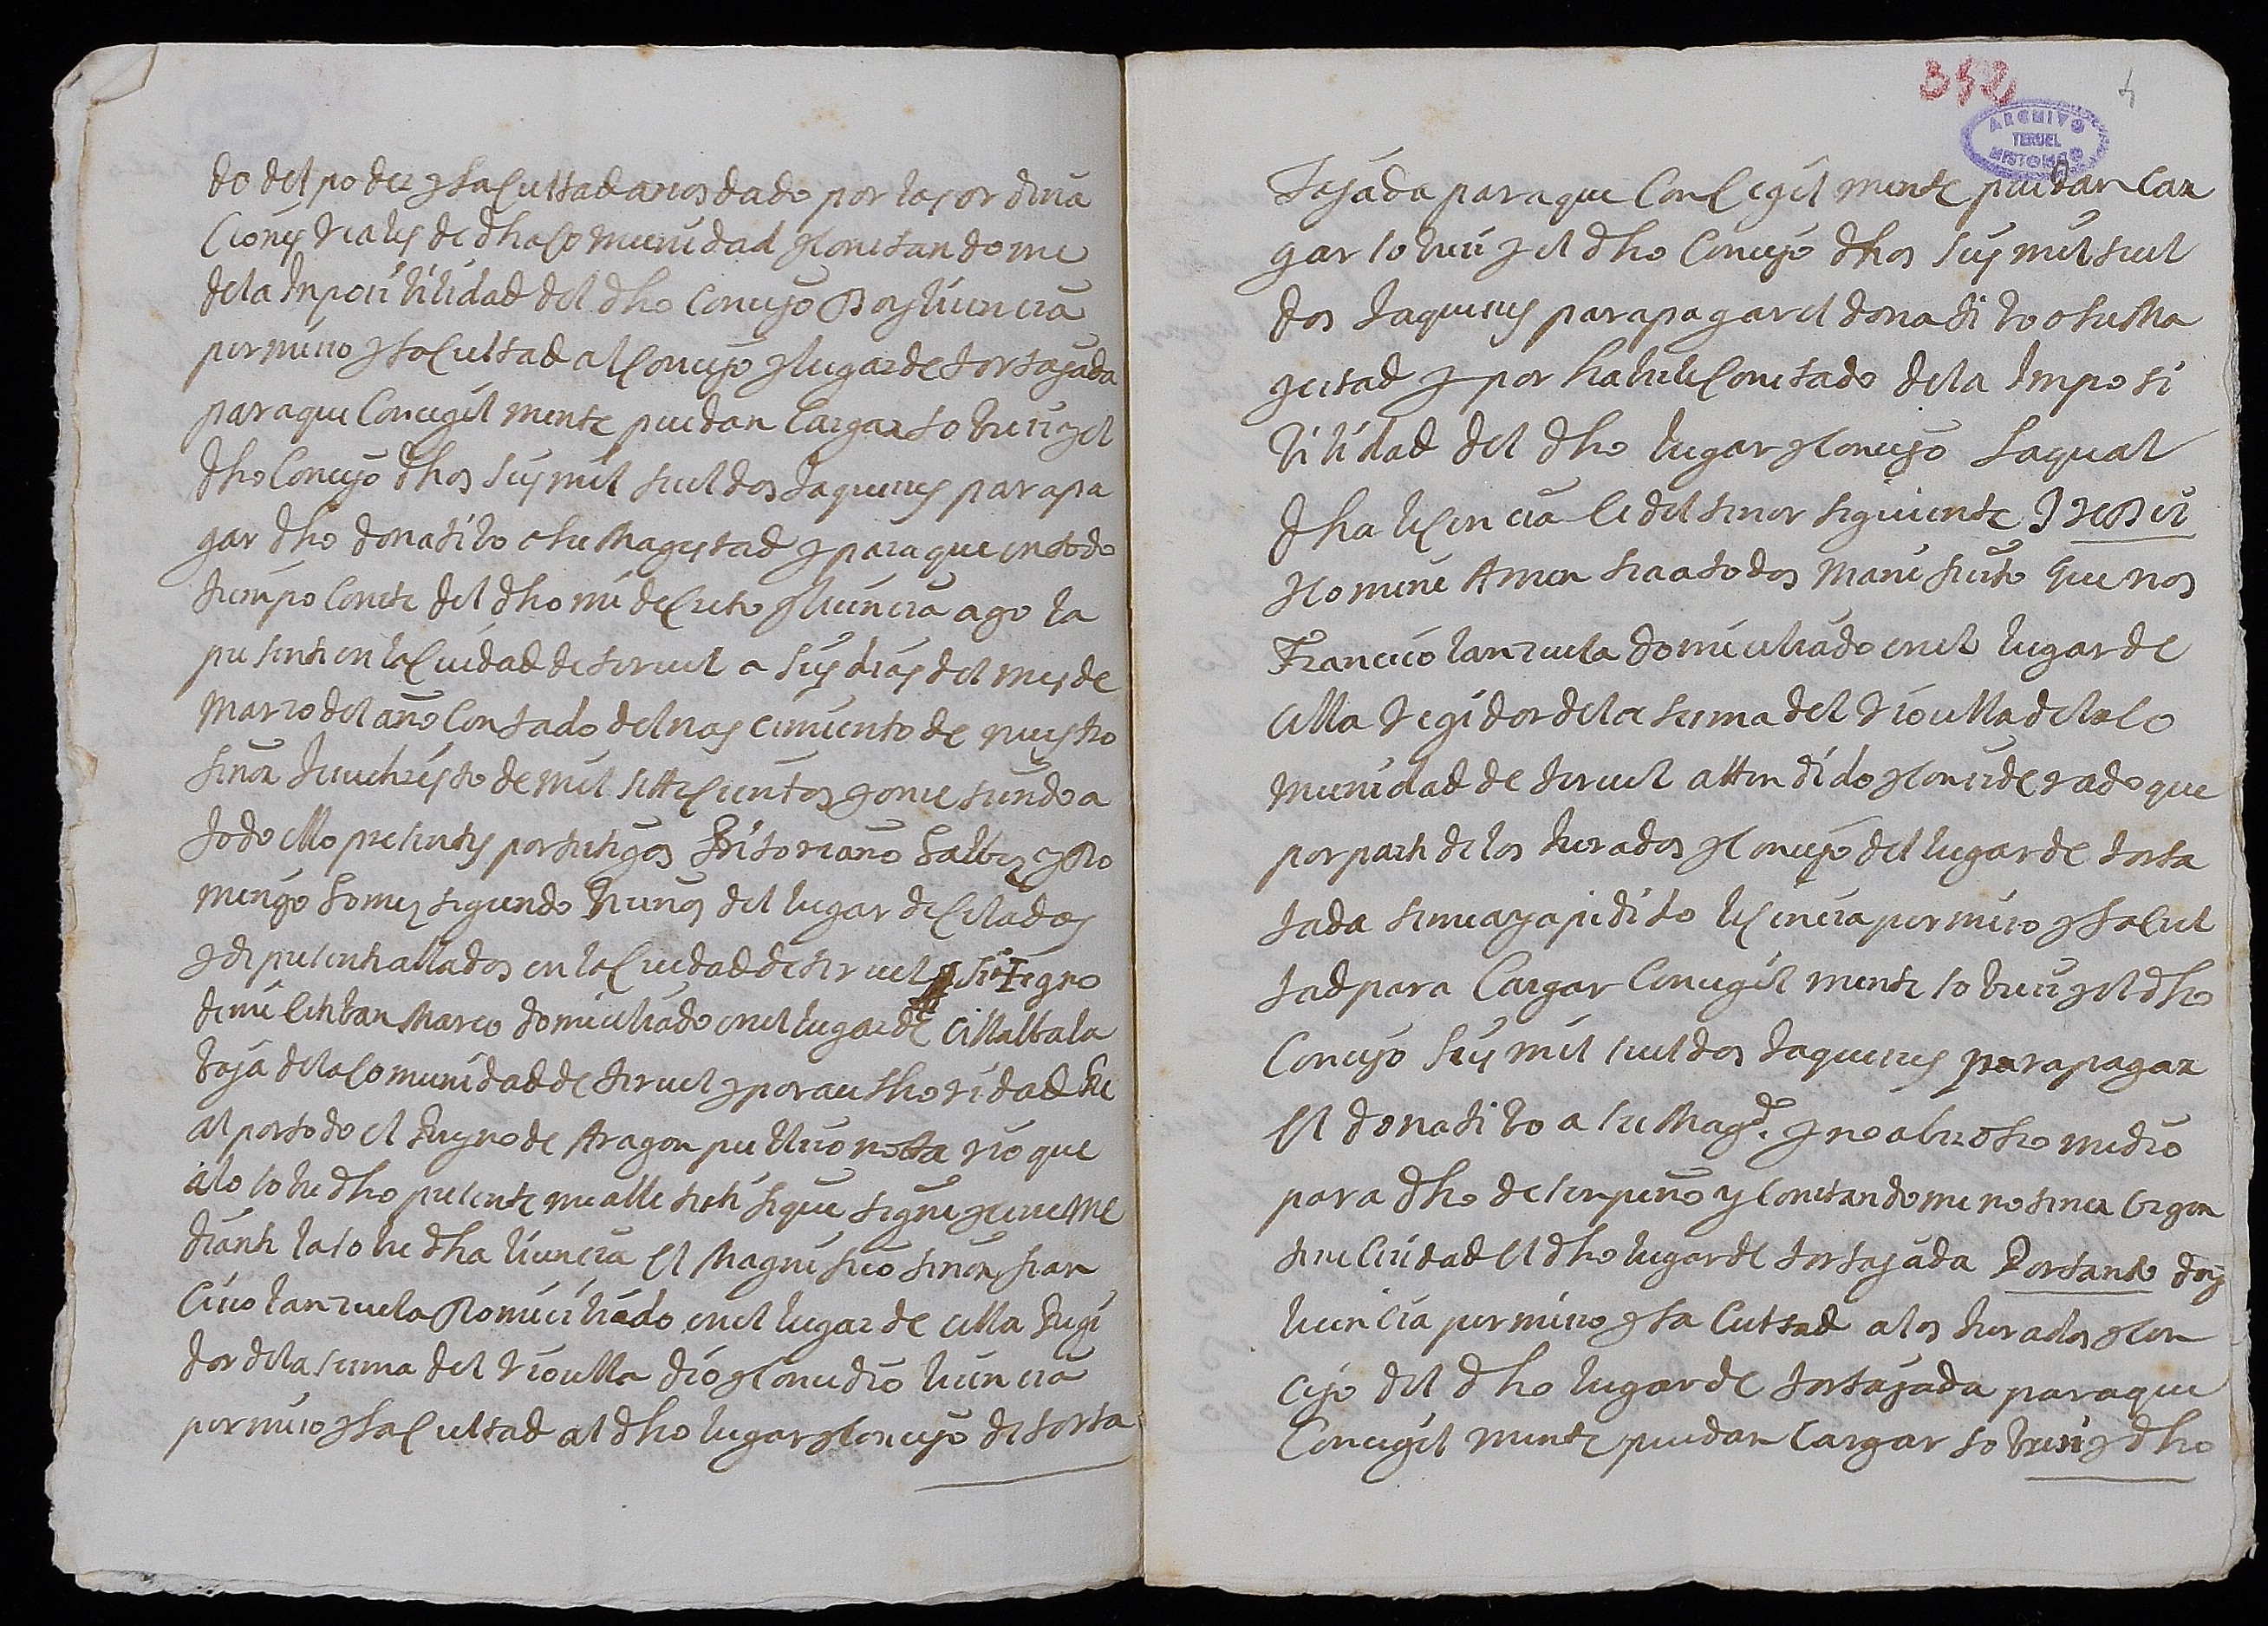 do del poder y facultad a nos dado por las ordina
ciones reales de dha comunidad y constandome
de la Inposivilidad del dho concejo Doy licencia
permisso y facultad al concejo y lugar de tortajada
para que concegil mente puedan cargar sobre si y el
dho Concejo dhos seys mil sueldos Jaqueses para pa
gar dho donatibo a su Magestad y para que en todo
tiempo conste del dho mi decreto y licencia ago la
presente en la Ciudad de teruel a seys dias del mes de
Marzo del año contado del nascimiento de nuestro
señor Jesuchristo de mil settecientos y onse siendo a
todo ello presentes por testigos Vitoriano Galbez y Do
mingo Gomez segundo Vecinos del lugar de Celadas
y de presente allados en la Ciudad de teruel Sig+no
de mi Esteban Marco domiciliado en el lugar de Villalba la
baja de la comunidad de teruel y por authoridad Re
al por todo el Reyno de Aragon publico notario que
a lo sobre dho presente me alle testifique signe y cerre Me
diante la sobre dha licencia el Magnifico señor fran
cisco lanzuela Domiciliado en el lugar de cella Regi
dor de la sesma del rio cella dio y concedio licencia
permiso y facultad al dho lugar y concejo de torta
352
4
ARCHIVO
TERUEL
HISTORICO
Tajada para que concegil mente puedan car
gar sobre si y el dho Concejo dhos seys mil suel
dos Jaqueses para pagar el donatibo a su Ma
gestad y por haberle constado de la Imposi
bilidad del dho lugar y concejo La qual
dha licencia es del tenor siguiente In Dei
Nomine Amen sea a todos manifiesto que nos
Francisco lanzuela domiciliado en el lugar de
cella regidor de la sesma del rio cella de la co
munidad de teruel attendido y considerado que
por parte de los Jurados y concejo del lugar de torta
Jada se me aya pedido licencia permiso y facul
tad para cargar concegil mente sobre si y el dho
Concejo seys mil sueldos Jaqueses para pagar
el donatibo a su Magd. y no aber otro medio
para dho desenpeño y constandome no tener
el dho lugar de tortajada Portanto doy
licencia permiso y facultad a los Jurados y con
cejo del dho lugar de tortajada para que
Concegil mente puedan cargar sobre si y dho